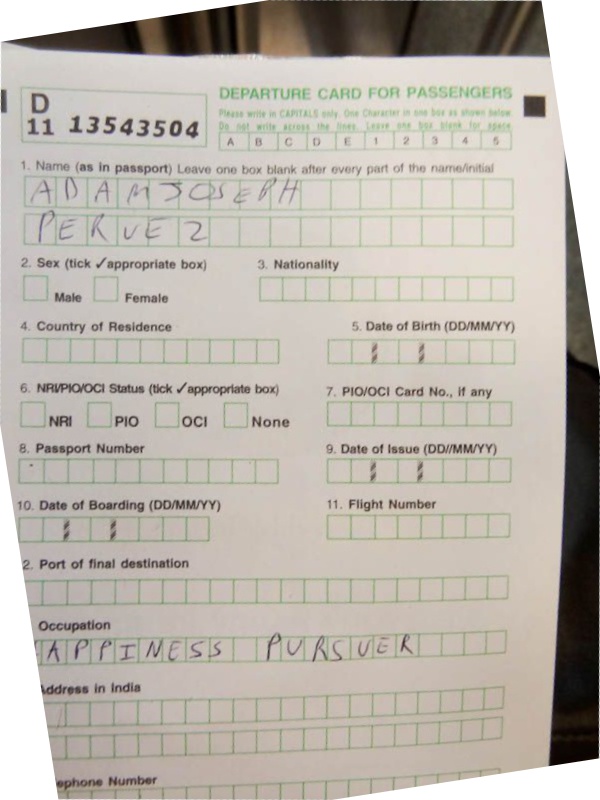 DEPARTURE CARD FOR PASSENGERS
D
11 13543504
Please write in CAPITALS only. One Character in one box as shown below
Do not write across the lines. Leave one box blank for space
A B C D E 1 2 3 4 5
1. Name (as in passport) Leave one box blank after every part of the name/initial
ADAMJOSEPH
PERVEZ
2. Sex (tick ✓appropriate box)
3. Nationality
Male Female
4. Country of Residence
5. Date of Birth (DD/MM/YY)
6. NRI/PIO/OCI Status (tick ✓appropriate box)
7. PIO/OCI Card No., if any
NRI PIO OCI None
8. Passport Number
9. Date of Issue (DD//MM/YY)
10. Date of Boarding (DD/MM/YY)
11. Flight Number
2. Port of final destination
Occupation
APPINESS PURSUER
Address in India
ephone Number